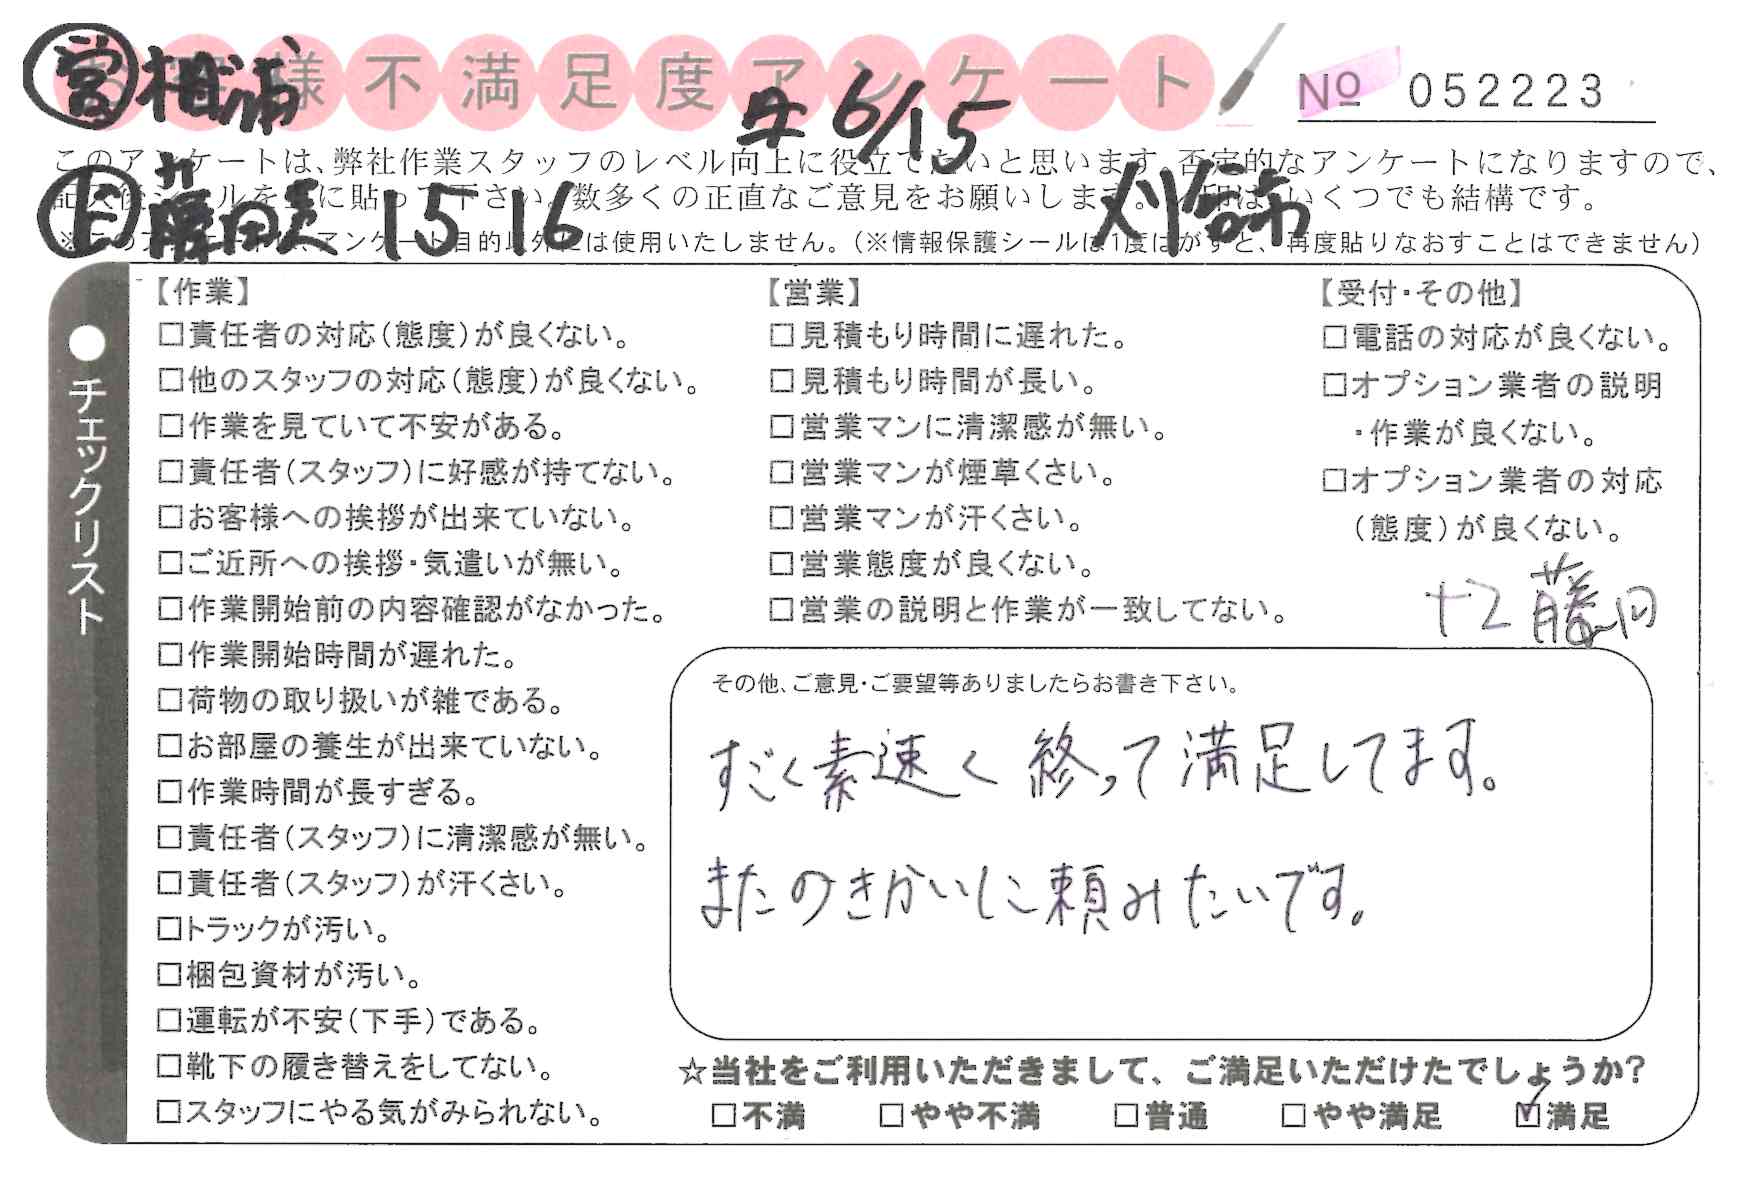 営 相浦
様不満足度アンケート
No 052223
6/15
このアンケートは、弊社作業スタッフのレベル向上に役立てたいと思います。否定的なアンケートになりますので、
記入後シールを上に貼って下さい。数多くの正直なご意見をお願いします。印は、いくつでも結構です。
藤田 15 16 刈谷市
※このアンケートは、アンケート目的以外には使用いたしません。(※情報保護シールは1度はがすと、再度貼りなおすことはできません)
●チェックリスト
【作業】
□責任者の対応(態度)が良くない。
□他のスタッフの対応(態度)が良くない。
□作業を見ていて不安がある。
□責任者(スタッフ)に好感が持てない。
□お客様への挨拶が出来ていない。
□ご近所への挨拶・気遣いが無い。
□作業開始前の内容確認がなかった。
□作業開始時間が遅れた。
□荷物の取り扱いが雑である。
□お部屋の養生が出来ていない。
□作業時間が長すぎる。
□責任者(スタッフ)に清潔感が無い。
□責任者(スタッフ)が汗くさい。
□トラックが汚い。
□梱包資材が汚い。
□運転が不安(下手)である。
□靴下の履き替えをしてない。
□スタッフにやる気がみられない。
【営業】
□見積もり時間に遅れた。
□見積もり時間が長い。
□営業マンに清潔感が無い。
□営業マンが煙草くさい。
□営業マンが汗くさい。
□営業態度が良くない。
□営業の説明と作業が一致してない。
【受付・その他】
□電話の対応が良くない。
□オプション業者の説明
・作業が良くない。
□オプション業者の対応
(態度)が良くない。
藤田
その他、ご意見・ご要望等ありましたらお書き下さい。
すごく素速く終って満足してます。
またのきかいに頼みたいです。
☆当社をご利用いただきまして、ご満足いただけたでしょうか?
□不満 □やや不満 □普通 □やや満足 ☑満足